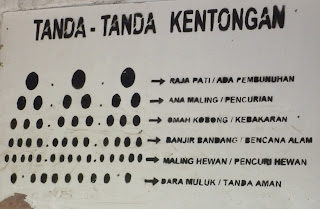 TANDA - TANDA KENTONGAN
RAJA PATI / ADA PEMBUNUHAN
ANA MALING / PENCURIAN
OMAH KOBONG / KEBAKARAN
BANJIR BANDANG / BENCANA ALAM
MALING HEWAN / PENCURI HEWAN
DARA MULUK / TANDA AMAN